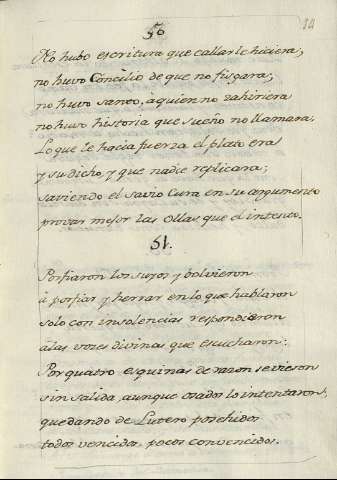 50
14
No hubo escritura que callar le hiciera,
no huvo Concilio de que no fisgara;
no huvo santo, à quien no zahiriera
no huvo historia que sueño no llamara.
Lo que le hacia fuerza el plato era
y su dicho, y que nadie replicara;
saviendo el savio Cura en su argumento
provar mejor las Ollas, que el intento.
51.
Porfiaron los suyos y bolvieron
à porfiar, y herrar en lo que hablaron
solo con insolencias respondieron
a las vozes divinas que escucharon:
Por quatro esquinas de razon se vieron
sin salida, aunque osados lo intentaron,
quedando de Lutero los hidos
todos vencidos, pocos convencidos.